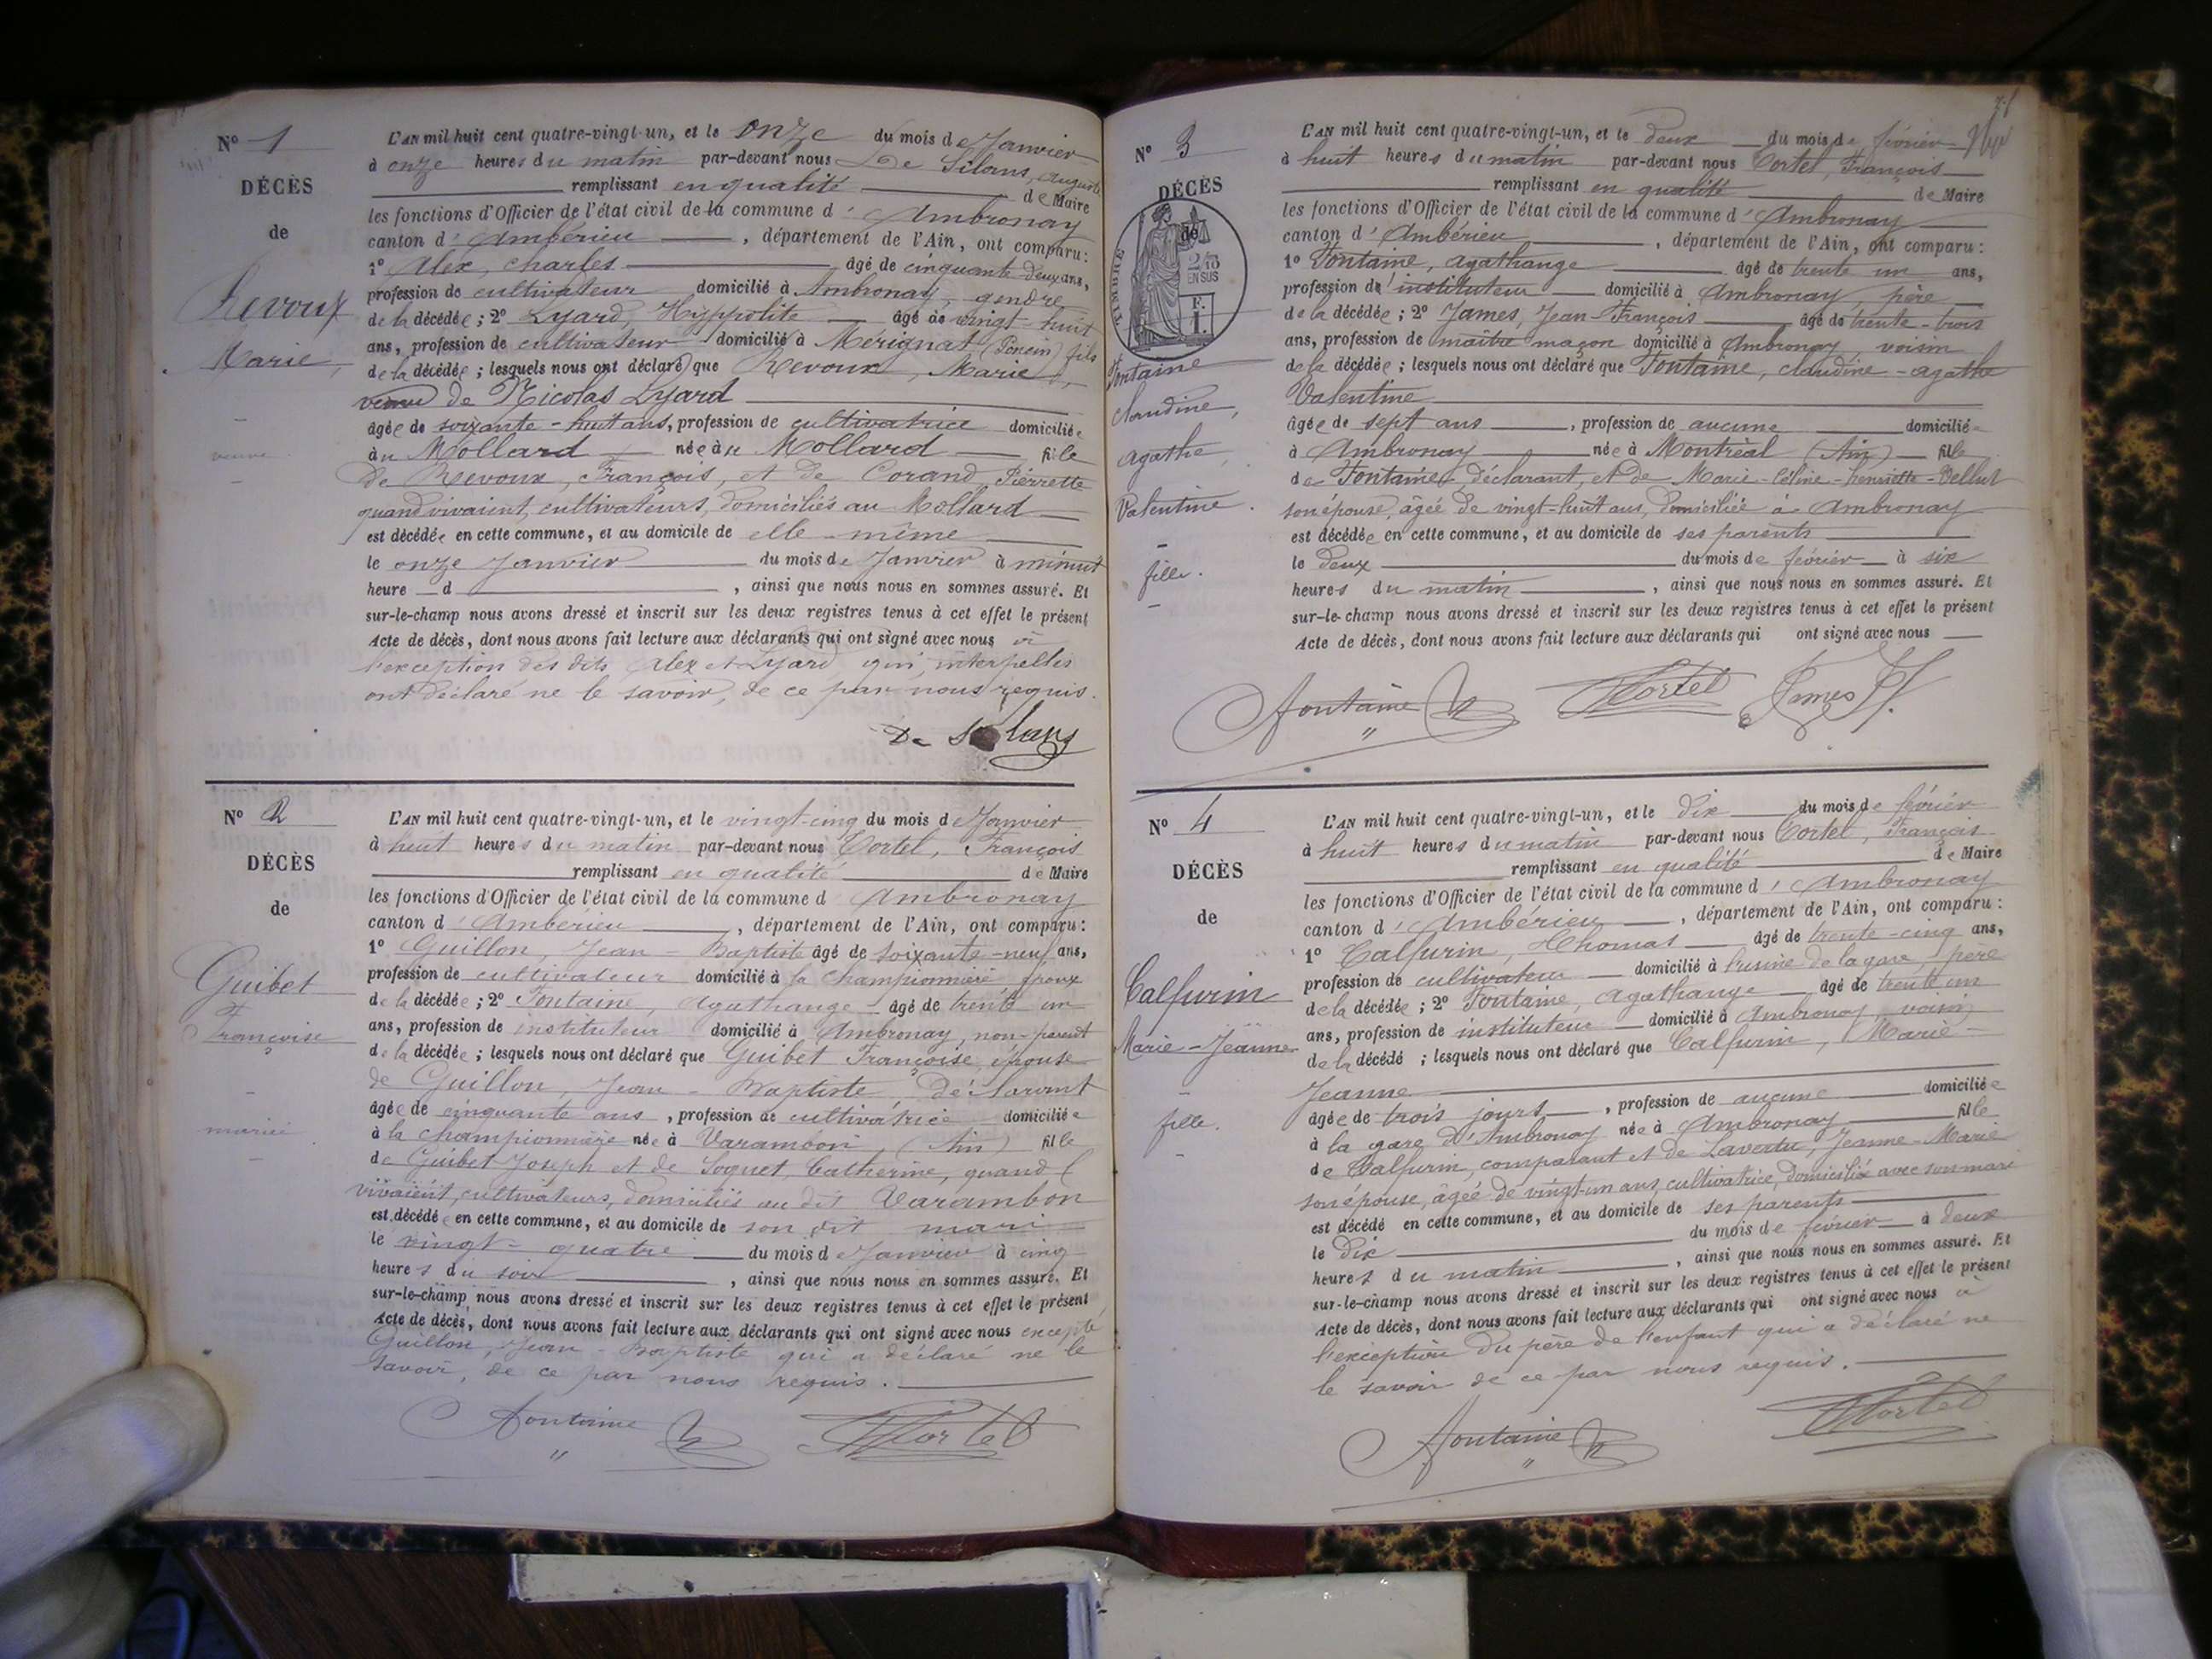 N° 1
DÉCÈS
de
Revoux
Marie,
veuve
L'AN mil huit cent quatre-vingt-un, et le onze du mois de Janvier
à onze heures du matin par-devant nous De Silans, Auguste
remplissant en qualité de Maire
les fonctions d'Officier de l'état civil de la commune d'Ambronay
canton d'Ambérieu, département de l'Ain, ont comparu:
1° Alex, Charles âgé de cinquante-deux ans,
profession de cultivateur domicilié à Ambronay, gendre
de la décédée; 2° Lyard, Hyppolite âgé de vingt-huit
ans, profession de cultivateur domicilié à Mérignat (Poncin) fils
de la décédée; lesquels nous ont déclaré que Revoux, Marie,
veuve de Nicolas Lyard
âgée de soixante-huit ans, profession de cultivatrice domiciliée
au Mollard née au Mollard fille
de Revoux, François, et de Corand, Pierrette
quand vivaient, cultivateurs, domiciliés au Mollard
est décédée en cette commune, et au domicile de elle-même
le onze Janvier du mois de Janvier à minuit
heure d , ainsi que nous nous en sommes assuré. Et
sur-le-champ nous avons dressé et inscrit sur les deux registres tenus à cet effet le présent
Acte de décès, dont nous avons fait lecture aux déclarants qui ont signé avec nous à
l'exception des dits Alex et Lyard qui, interpellés
ont déclaré ne le savoir, de ce par nous requis.
De Silans
N° 2
DÉCÈS
de
Guibet
Françoise
mariée
L'AN mil huit cent quatre-vingt-un, et le vingt-cinq du mois de Janvier
à huit heures du matin par-devant nous Tortel, François
remplissant en qualité de Maire
les fonctions d'Officier de l'état civil de la commune d Ambronay
canton d'Ambérieu, département de l'Ain, ont comparu:
1° Guillon, Jean-Baptiste âgé de soixante-neuf ans,
profession de cultivateur domicilié à la Championnière époux
de la décédée; 2° Fontaine, Agathange âgé de trente un
ans, profession de instituteur domicilié à Ambronay, non-parent
de la décédée; lesquels nous ont déclaré que Guibet Françoise, épouse
de Guillon, Jean-Baptiste, déclarant
âgée de cinquante ans, profession de cultivatrice domiciliée
à la Championnière née à Varambon (Ain) fille
de Guibet Joseph et de Soquet, Catherine, quand
vivaient, cultivateurs, domiciliés au dit Varambon
est décédée en cette commune, et au domicile de son dit mari
le vingt-quatre du mois de Janvier à cinq
heures du soir, ainsi que nous nous en sommes assuré. Et
sur-le-champ nous avons dressé et inscrit sur les deux registres tenus à cet effet le présent
Acte de décès, dont nous avons fait lecture aux déclarants qui ont signé avec nous excepté
Guillon, Jean-Baptiste qui a déclaré ne le
savoir, de ce par nous requis.
Fontaine Tortel
N° 3
DÉCÈS
de
TIMBRE
2/10
EN SUS
F.
I.
Fontaine
Claudine,
Agathe,
Valentine.
fille.
L'AN mil huit cent quatre-vingt-un, et le deux du mois de février
à huit heures du matin par-devant nous Tortel, François
remplissant en qualité de Maire
les fonctions d'Officier de l'état civil de la commune d'Ambronay
canton d'Ambérieu, département de l'Ain, ont comparu:
1° Fontaine, Agathange âgé de trente un ans,
profession de instituteur domicilié à Ambronay, père
de la décédée; 2° James, Jean-François âgé de trente-trois
ans, profession de maître maçon domicilié à Ambronay voisin
de la décédée; lesquels nous ont déclaré que Fontaine, Claudine-Agathe
Valentine
âgée de sept ans, profession de aucune domiciliée
à Ambronay née à Montréal (Ain) fille
de Fontaine, déclarant, et de Marie-Céline-henriette-Vellut
son épouse, âgée de vingt-huit ans, domiciliée à Ambronay
est décédée en cette commune, et au domicile de ses parents
le deux du mois de février à six
heures du matin, ainsi que nous nous en sommes assuré. Et
sur-le-champ nous avons dressé et inscrit sur les deux registres tenus à cet effet le présent
Acte de décès, dont nous avons fait lecture aux déclarants qui ont signé avec nous
Fontaine Tortel James
N° 4
DÉCÈS
de
Calfurin
Marie-Jeanne
fille.
L'AN mil huit cent quatre-vingt-un, et le dix du mois de février
à huit heures du matin par-devant nous Tortel, François
remplissant en qualité de Maire
les fonctions d'Officier de l'état civil de la commune d'Ambronay
canton d'Ambérieu, département de l'Ain, ont comparu:
1° Calfurin, Thomas âgé de trente-cinq ans,
profession de cultivateur domicilié à l'usine de la gare, père
de la décédée; 2° Fontaine, Agathange âgé de trente un
ans, profession de instituteur domicilié à Ambronay voisin
de la décédé; lesquels nous ont déclaré que Calfurin, Marie-
Jeanne
âgée de trois jours, profession de aucune domiciliée
à la gare d'Ambronay née à Ambronay fille
de Calfurin, comparant et de Lavertu, Jeanne-Marie
son épouse, âgée de vingt-un ans, cultivatrice, domiciliée avec son mari
est décédé en cette commune, et au domicile de ses parents
le dix du mois de février à deux
heures du matin, ainsi que nous nous en sommes assuré. Et
sur-le-champ nous avons dressé et inscrit sur les deux registres tenus à cet effet le présent
Acte de décès, dont nous avons fait lecture aux déclarants qui ont signé avec nous à
l'exception du père de l'enfant qui a déclaré ne
le savoir de ce par nous requis.
Fontaine Tortel